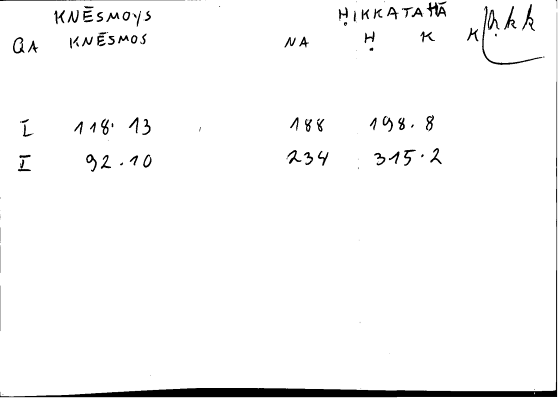 KNĒSMOYS ḤIKKATAHĀ
QA KNĒSMOS NA Ḥ K K ḥkk
I 118.13 188 198.8
II 92.10 234 315.2